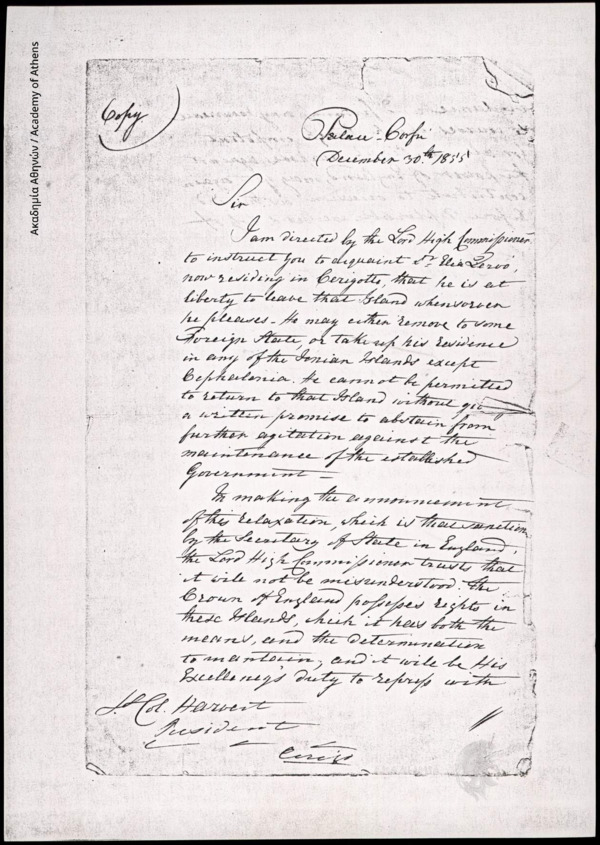 Ακαδημία Αθηνών / Academy of Athens
Copy
Palace - Corfu
December 30.th 1855
Sir
I am directed by the Lord High Commissioner
to instruct you to acquaint Sr. Elia Zervo,
now residing in Cerigotto, that he is at
liberty to leave that Island whensoever
he pleases - He may either remove to some
Foreign State, or take up his residence
in any of the Ionian Islands except
Cephalonia. He cannot be permitted
to return to that Island without
a written promise to abstain from
further agitation against the
maintenance of the established
Government -
In making the announcement
of this relaxation, which is
by the Secretary of State in England,
the Lord High Commissioner trusts that
it will not be misunderstood. The
Crown of England possesses rights in
these Islands, which it has both the
means, and the determination
to mantain, and it will be His
Excellency's duty to repress with
Lt. Col. Harvest
Resident
Cerigo